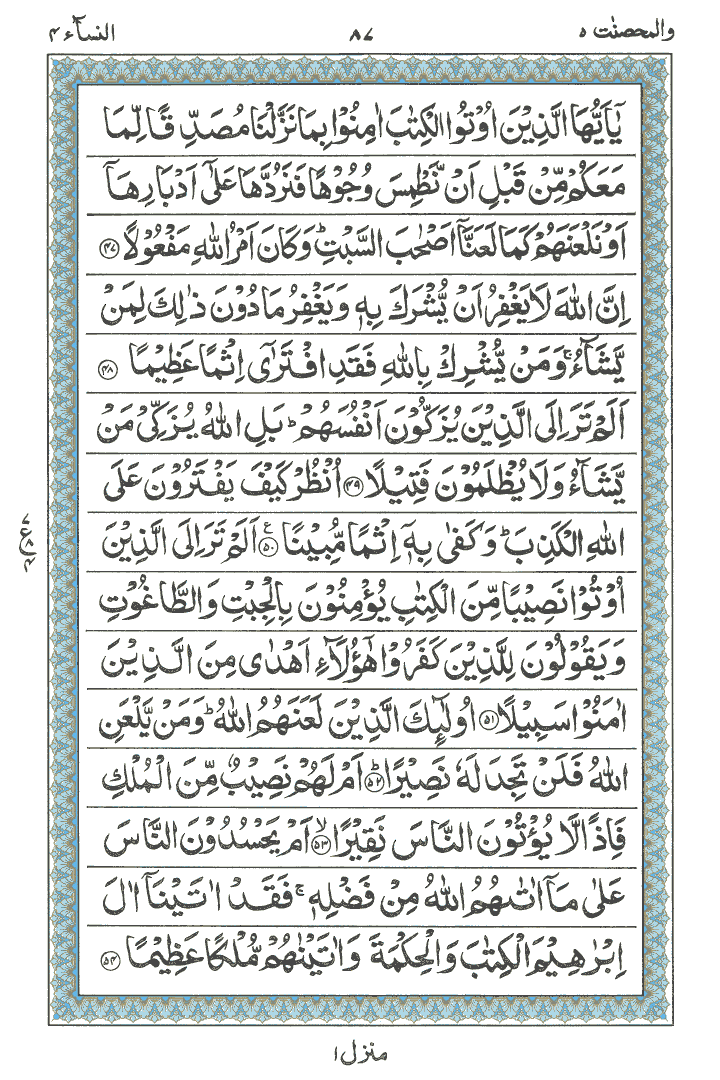 والمحصنت ٥ ٨٧ النسآء ٤
يٰۤاَيُّهَا الَّذِيْنَ اُوْتُوا الْكِتٰبَ اٰمِنُوْا بِمَا نَزَّلْنَا مُصَدِّقًا لِّمَا
مَعَكُمْ مِّنْ قَبْلِ اَنْ نَّطْمِسَ وُجُوْهًا فَنَرُدَّهَا عَلٰۤى اَدْبَارِهَاۤ
اَوْ نَلْعَنَهُمْ كَمَا لَعَنَّاۤ اَصْحٰبَ السَّبْتِ ؕ وَكَانَ اَمْرُ اللّٰهِ مَفْعُوْلًا ﴿٤٧﴾
اِنَّ اللّٰهَ لَا يَغْفِرُ اَنْ يُّشْرَكَ بِهٖ وَيَغْفِرُ مَا دُوْنَ ذٰلِكَ لِمَنْ
يَّشَآءُ ۚ وَمَنْ يُّشْرِكْ بِاللّٰهِ فَقَدِ افْتَرٰۤى اِثْمًا عَظِيْمًا ﴿٤٨﴾
اَلَمْ تَرَ اِلَى الَّذِيْنَ يُزَكُّوْنَ اَنْفُسَهُمْ ؕ بَلِ اللّٰهُ يُزَكِّيْ مَنْ
يَّشَآءُ وَلَا يُظْلَمُوْنَ فَتِيْلًا ﴿٤٩﴾ اُنْظُرْ كَيْفَ يَفْتَرُوْنَ عَلَى
اللّٰهِ الْكَذِبَ ؕ وَكَفٰى بِهٖۤ اِثْمًا مُّبِيْنًا ﴿٥٠﴾ ع اَلَمْ تَرَ اِلَى الَّذِيْنَ
اُوْتُوْا نَصِيْبًا مِّنَ الْكِتٰبِ يُؤْمِنُوْنَ بِالْجِبْتِ وَالطَّاغُوْتِ
وَيَقُوْلُوْنَ لِلَّذِيْنَ كَفَرُوْا هٰۤؤُلَآءِ اَهْدٰى مِنَ الَّذِيْنَ
اٰمَنُوْا سَبِيْلًا ﴿٥١﴾ اُولٰٓئِكَ الَّذِيْنَ لَعَنَهُمُ اللّٰهُ ؕ وَمَنْ يَّلْعَنِ
اللّٰهُ فَلَنْ تَجِدَ لَهٗ نَصِيْرًا ؕ﴿٥٢﴾ اَمْ لَهُمْ نَصِيْبٌ مِّنَ الْمُلْكِ
فَاِذًا لَّا يُؤْتُوْنَ النَّاسَ نَقِيْرًا ۙ﴿٥٣﴾ اَمْ يَحْسُدُوْنَ النَّاسَ
عَلٰى مَاۤ اٰتٰىهُمُ اللّٰهُ مِنْ فَضْلِهٖ ۚ فَقَدْ اٰتَيْنَاۤ اٰلَ
اِبْرٰهِيْمَ الْكِتٰبَ وَالْحِكْمَةَ وَاٰتَيْنٰهُمْ مُّلْكًا عَظِيْمًا ﴿٥٤﴾
منزل ١